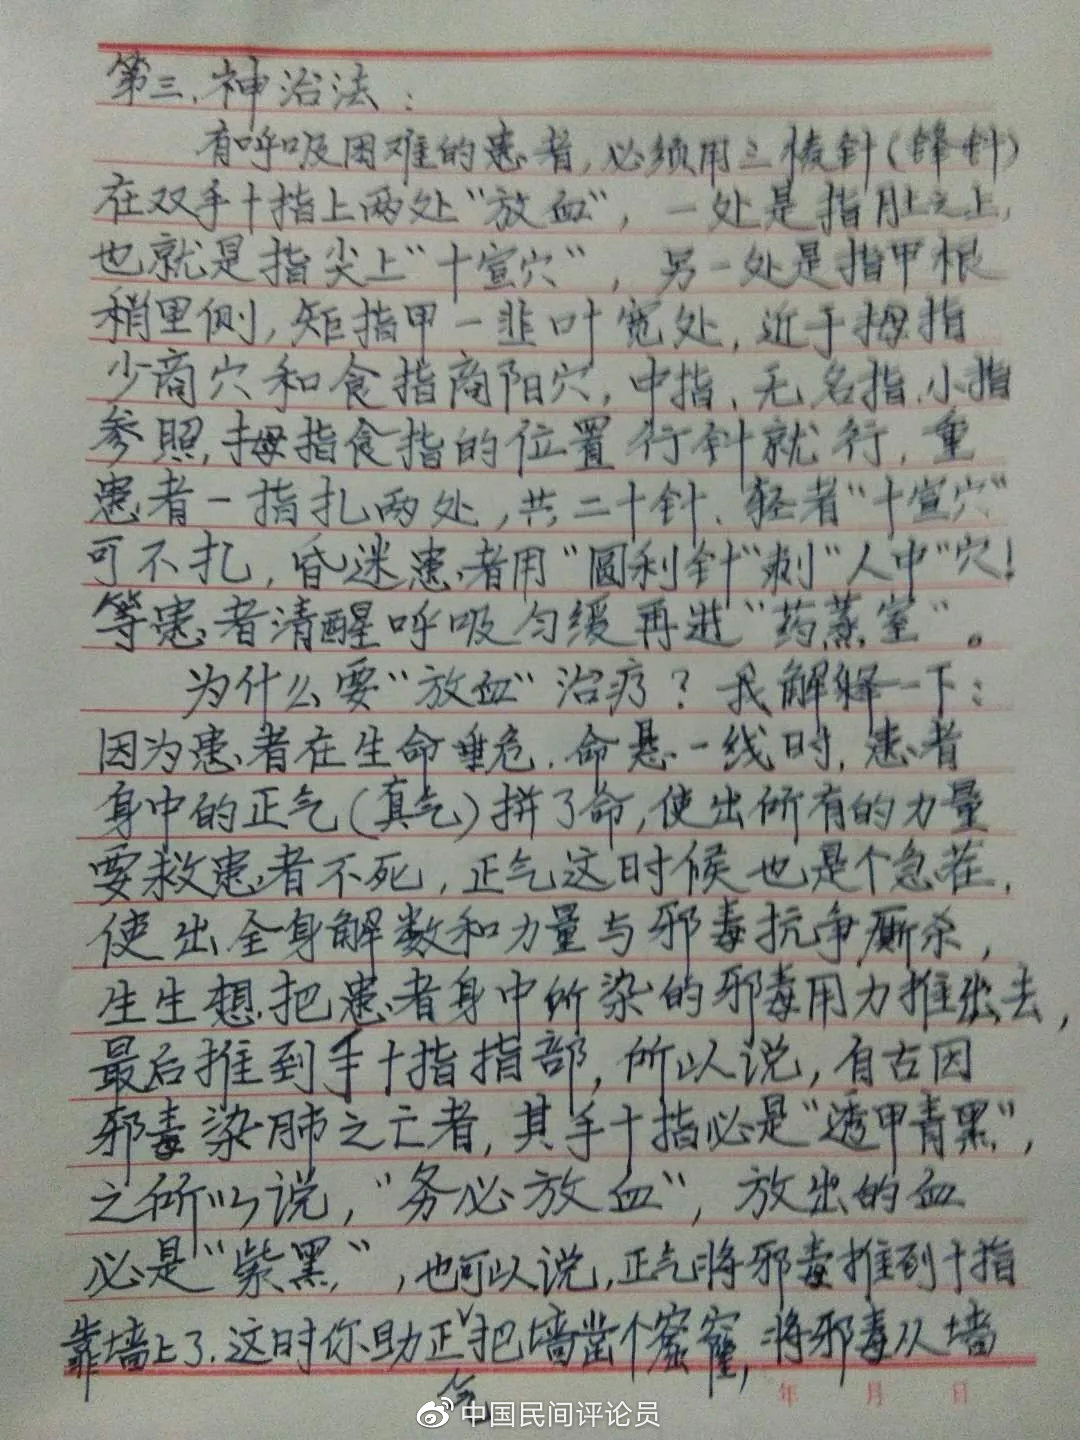 第三.神治法：
有呼吸困难的患者,必须用三棱针(锋针)
在双手十指上两处“放血”,一处是指肚之上,
也就是指尖上“十宣穴”,另一处是指甲根
稍里侧,矩指甲一韭叶宽处,近于拇指
少商穴和食指商阳穴,中指、无名指、小指
参照,拇指食指的位置行针就行,重
患者一指扎两处,共二十针、轻者“十宣穴”
可不扎,昏迷患者用“圆利针”刺“人中”穴!
等患者清醒呼吸匀缓再进“药蒸室”。
为什么要“放血”治疗?我解释一下:
因为患者在生命垂危.命悬一线时,患者
身中的正气(真气)拼了命,使出所有的力量
要救患者不死,正气这时候也是个急茬,
使出全身解数和力量与邪毒抗争厮杀,
生生想把患者身中所染的邪毒用力推出去,
最后推到手十指指部,所以说,自古因
邪毒染肺之亡者,其手十指必是“透甲青黑”,
之所以说,“务必放血”,放出的血
必是“紫黑”,也可以说,正气将邪毒推到十指
靠墙上了.这时你助正气把墙凿个窟窿,将邪毒从墙
年 月 日
中国民间评论员